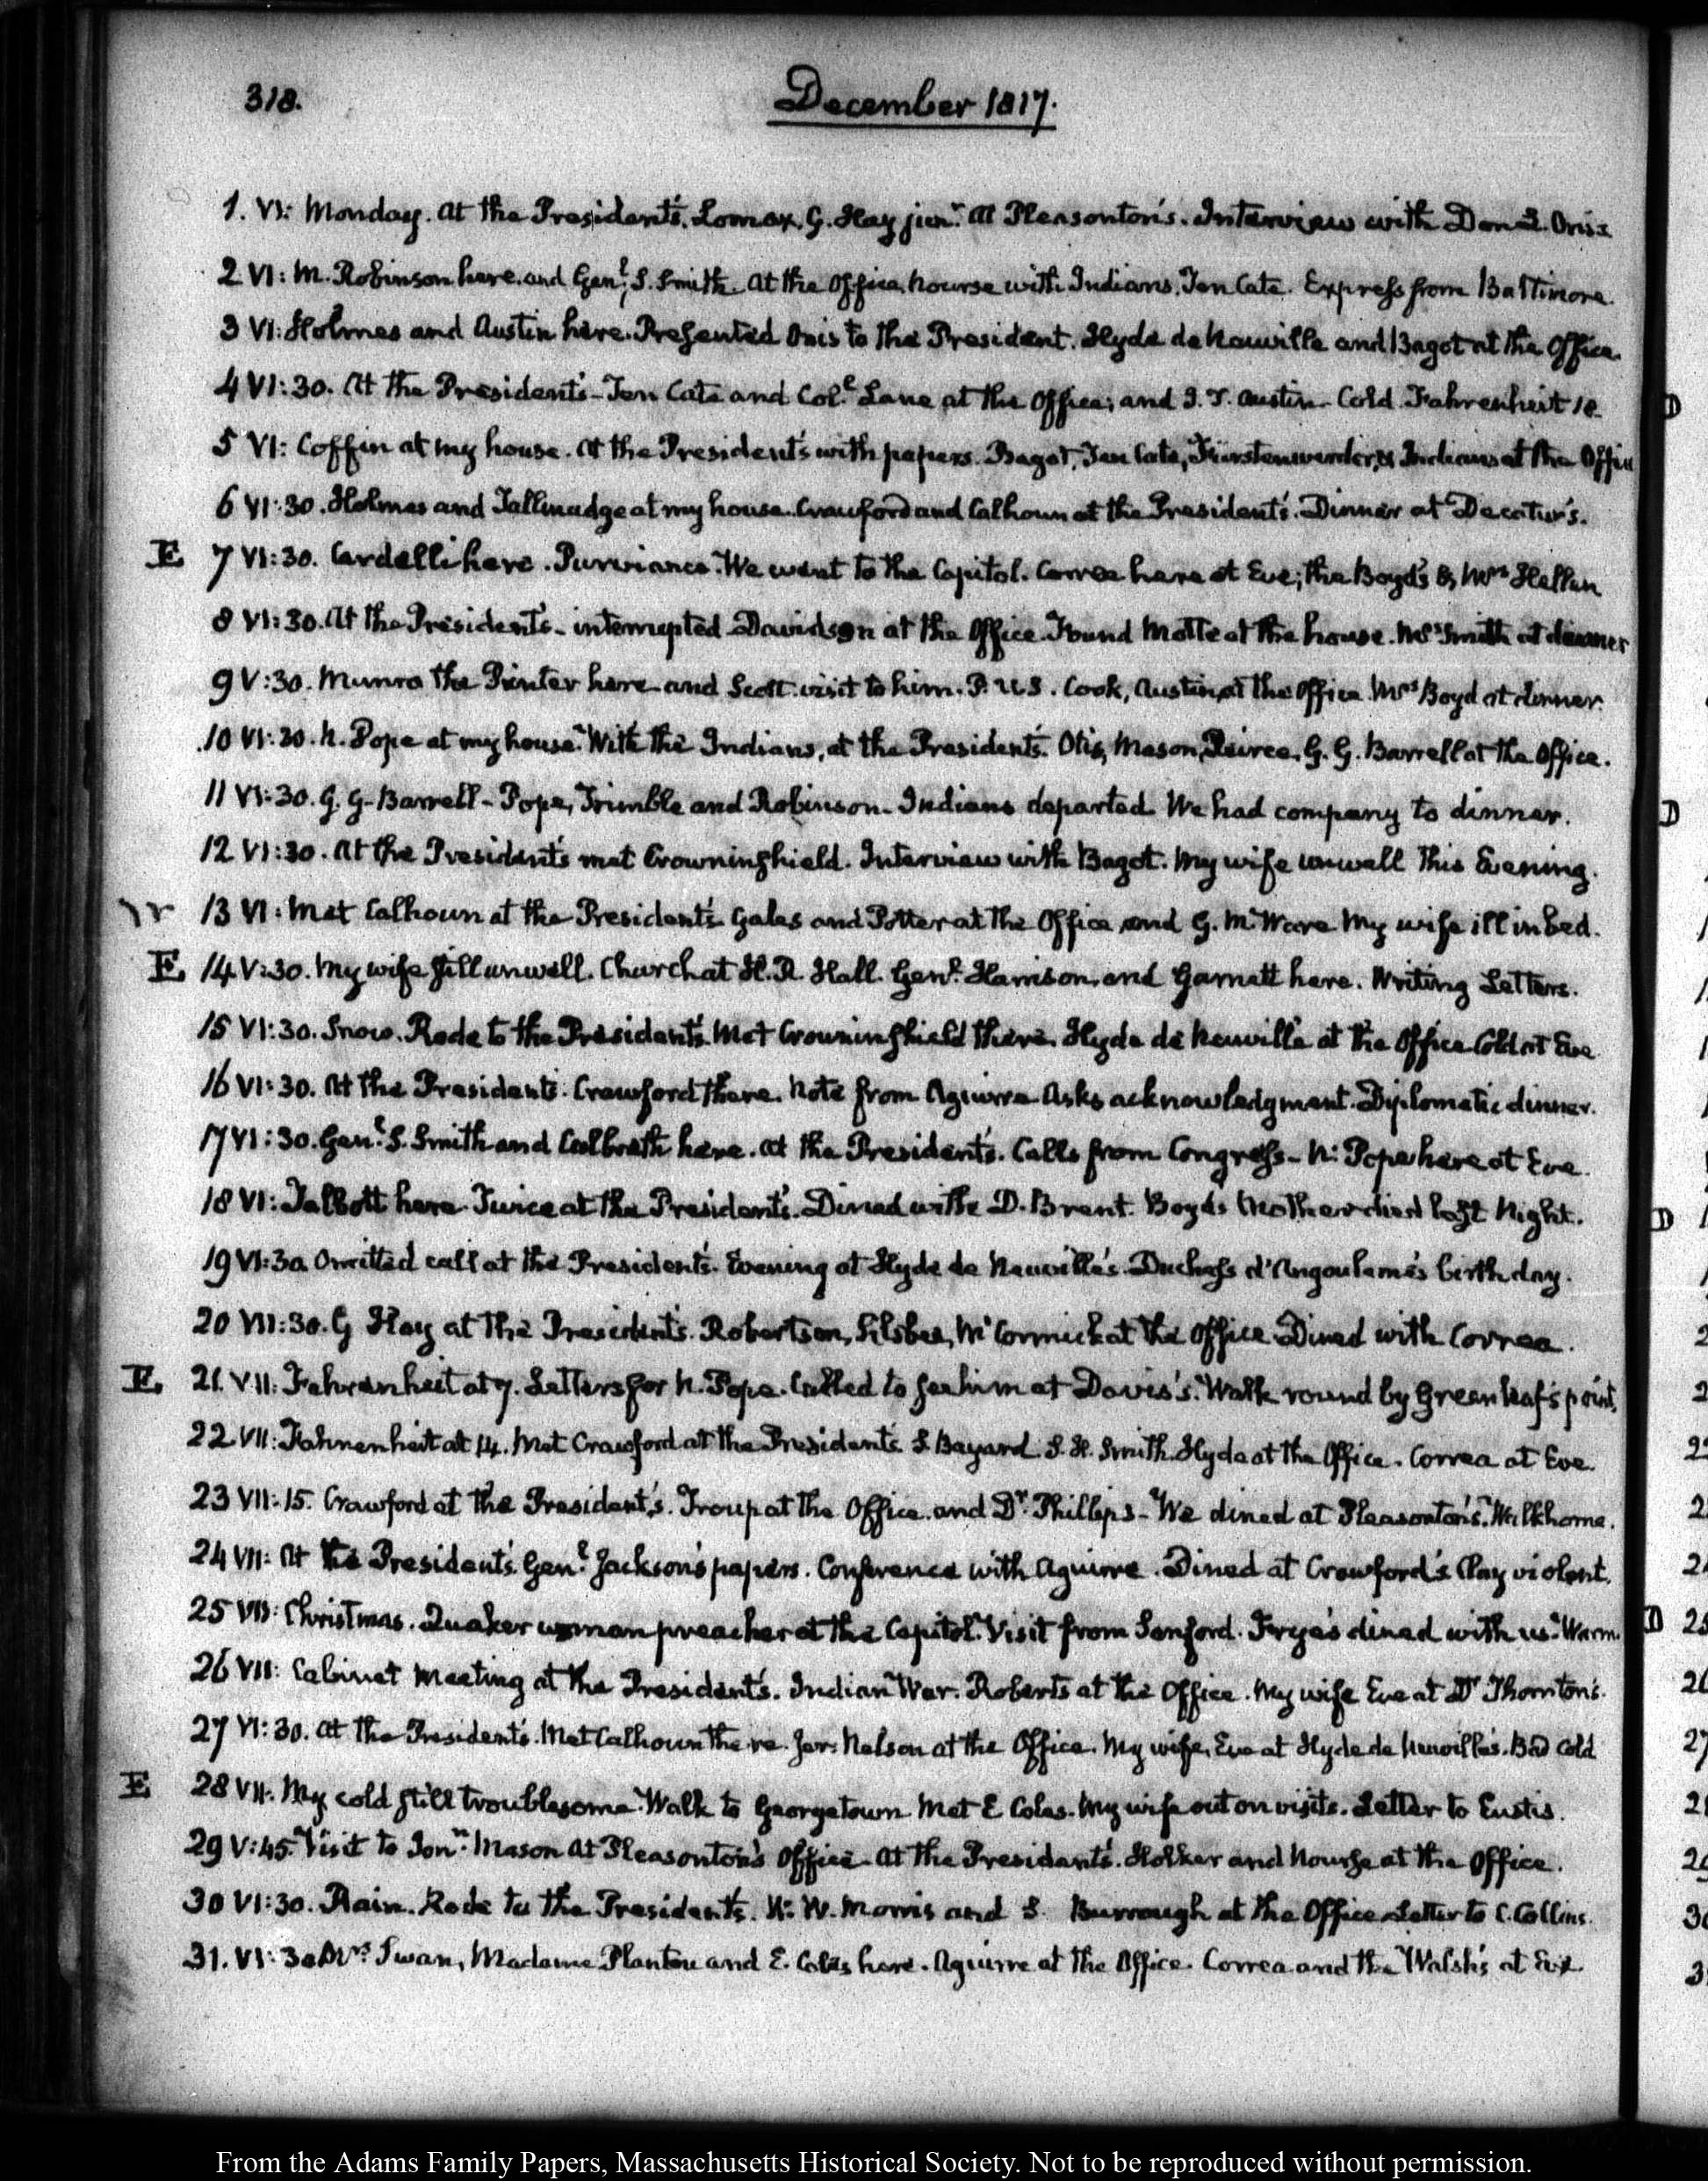 318.
December 1817.
1. VI: Monday. At the President's. Lomax, G. Hay junr. At Pleasonton's. Interview with Don L. Onis
2 VI: M. Robinson here, and Genl. S. Smith. At the Office, Nourse with Indians, Ten Cate. Express from Baltimore.
3 VI: Holmes and Austin here. Presented Onis to the President. Hyde de Neuville and Bagot at the Office.
4 VI:30. At the President's - Ten Cate and Coll. Lane at the Office; and J. T. Austin. Cold. Fahrenheit 18
5 VI: Coffin at my house. At the President's with papers. Bagot, Ten Cate, Fürstenwerder, & Indians at the Office
6 VI:30. Holmes and Tallmadge at my house. Crawford and Calhoun at the President's. Dinner at Decatur's.
E 7 VI:30. Cardelli here. Purviance. We went to the Capitol. Correa here at Eve; the Boyd's & Mrs Hellen
8 VI:30. At the President's - interrupted. Davidson at the Office. Found Motte at the house. Mrs Smith at dinner
9 V:30. Munro the Printer here and Scott. visit to him. P. U.S. Cook, Austin, at the Office. Mrs Boyd at dinner.
10 VI:30. N. Pope at my house. With the Indians, at the President's. Otis, Mason, Peirce, G. G. Barrell at the Office.
11 VI:30. G. G. Barrell - Pope, Trimble and Robinson. Indians departed. We had company to dinner.
12 VI:30. At the President's met Crowninshield. Interview with Bagot. My wife unwell this Evening.
13 VI: Met Calhoun at the President's. Gales and Potter at the Office, and G. M. Ware. My wife ill in bed.
E 14 V:30. My wife still unwell. Church at H. R. Hall. Genl. Harrison, and Garnett here. Writing Letters.
15 VI:30. Snow. Rode to the President's. Met Crowninshield there. Hyde de Neuville at the Office. Cold at Eve
16 VI:30. At the President's. Crawford there. Note from Aguirre. Asks acknowledgment. Diplomatic dinner.
17 VI:30. Genl. S. Smith and Culbreth here. At the President's. Calls from Congress - N. Pope here at Eve.
18 VI: Talbott here. Twice at the President's. Dined with D. Brent. Boyd's Mother died last Night.
19 VI:30. Omitted call at the President's. Evening at Hyde de Neuville's. Duchess d'Angouleme's birth day.
20 VII:30. G Hay at the President's. Robertson, Silsbee, McCormick at the Office. Dined with Correa.
E. 21. VII: Fahrenheit at 7. Letters for N. Pope. Called to see him at Davis's. Walk round by Greenleaf's point.
22. VII: Fahrenheit at 14. Met Crawford at the President's. S. Bayard. S. H. Smith. Hyde at the Office. Correa at Eve.
23 VII:15. Crawford at the President's. Troup at the Office. and Dr. Phillips - We dined at Pleasonton's. Walk home.
24 VII: At the President's. Genl. Jackson's papers. Conference with Aguirre. Dined at Crawford's. Clay violent.
25 VII: Christmas. Quaker woman preacher at the Capitol. Visit from Sanford. Frye's dined with us. Warm.
26 VII: Cabinet Meeting at the President's. Indian War. Roberts at the Office. My wife Eve at Dr Thornton's.
27 VI:30. At the President's. Met Calhoun there. Jer. Nelson at the Office. My wife, Eve at Hyde de Neuville's. Bad cold
E 28 VII. My cold still troublesome. Walk to Georgetown. Met E Coles. My wife out on visits. Letter to Eustis.
29 V:45. Visit to Jonn. Mason at Pleasonton's Office. At the President's. Holker and Nourse at the Office.
30 VI:30. Rain. Rode to the President's. W. W. Morris and S. Burrough at the Office. Letter to C. Collins.
31. VI:30 Mrs. Swan, Madame Plantou and E. Coles here. Aguirre at the Office. Correa and the Walsh's at Eve.
From the Adams Family Papers, Massachusetts Historical Society. Not to be reproduced without permission.